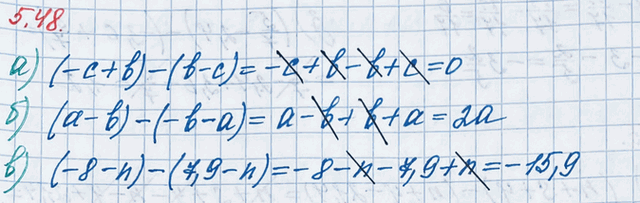 5.48.
а) (-c+b)-(b-c)=-c+b-b+c=0
б) (a-b)-(-b-a)=a-b+b+a=2a
в) (-8-n)-(7,9-n)=-8-n-7,9+n=-15,9